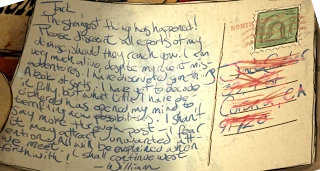 Jack,
The strangest thing has happened!
Please discount all reports of my
demise, should they reach you. I am
very much alive despite my recent mis-
adventures. I have discovered
A book of spells I have yet to decode
fully, but what little I have de-
ciphered has opened my mind to
new possibilities. I shan't
say more through post - I fear
it may attract unwanted att-
ention. All will be explained when
we meet. I shall continue west
forthwith!
-William
NORTH
CA